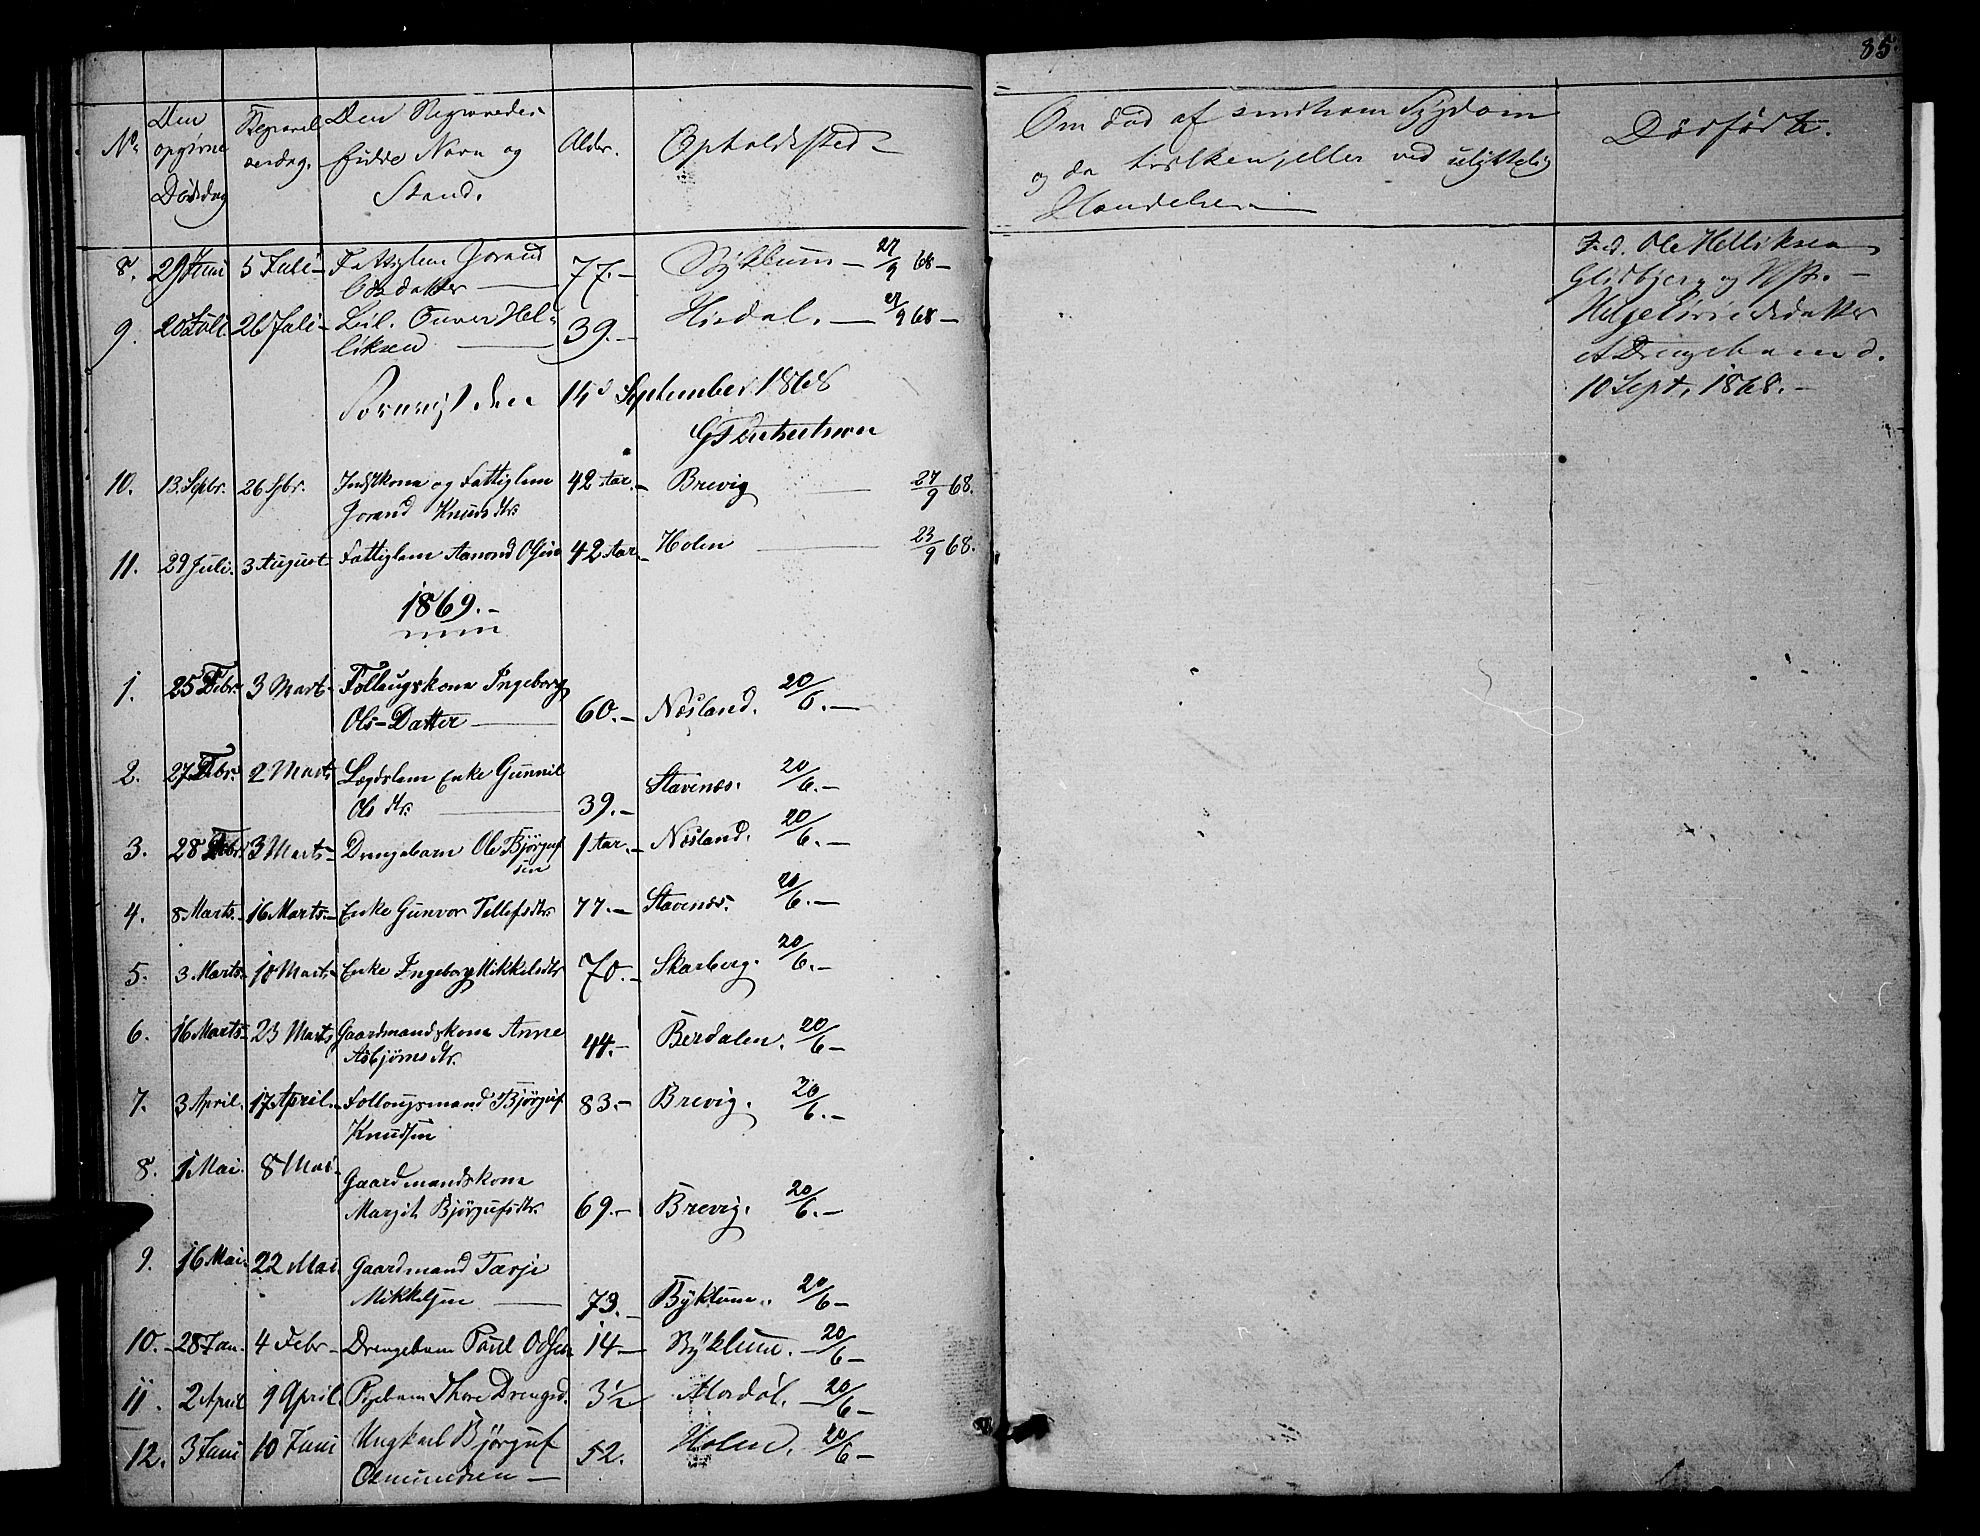 85.
No. Den opgivne Dødsdag Begravelsesdag. Den Begravedes fulde Navn og Stand. Alder. Opholdssted
Om død af smitsom Sygdom og da hvilken, eller ved ulykkelig Hændelse Dødfødte.
8. 29 Juni 5 Juli Fattiglem Jorand
datter 77.- Byklum - 27/9 68-
9. 20 Juli 26 Juli Gunvor Hel-
liksen 39.- Hisdal. - 27/9 68-
den 15d September 1868
10. 13 Sepbr. 26 Sbr. Indstkone og Fattiglem 42 Aar.- Brevig 27/9 68.
Jorand Knudsdtr
11. 29 Juli. 3 August Fattiglem Aamond Olsen 42 Aar.- Holen 23/9 68.
1869.-
1. 25 Febr. 3 Mart. Føllaugskone Ingeborg
Ols-Datter 60.- Næsland. 20/6.-
2. 27 Febr. 2 Mart. Lægdslem Enke Gunnil
Ols dtr. 39.- Stavenæs. 20/6.-
3. 28 Febr. 3 Marts- Drengebarn Ole Bjørguf
sen 1 Aar.- Næsland. 20/6.-
4. 8 Marts.- 16 Marts.- Enke Gunvor Tellefsdtr 77.- Stavenæs. 20/6.-
5. 3 Marts- 10 Mart.- Enke Ingeborg Mikkelsdtr 70.- Skarberg. 20/6.-
6. 16 Marts- 23 Marts Gaardmandskone Anne
Asbjørnsdtr. 44.- Berdalen. 20/6-
7. 3 April. 17 April. Føllougsmand Bjørguf 83.- Brevig. 20/6.-
Knudsen
8. 1 Mai. 8 Mai- Gaardmandskone
Margit Bjørgufsdtr. 69.- Brevig. 20/6.-
9. 16 Mai. 22 Mai. Gaardmand Tarje
Mikkelsen 73.- Byklum. 20/6-
10.- 28 Jan. 4 Febr- Drengebarn Paul Odsen 14- Byklum. - 20/6-
11. 2 April 9 April Pigebarn Thore Drengsd. 3½ Mosdøl. - 20/6-
12. 3 Juni 10 Juni Ungkarl Bjørguf
Osmundsen - 52. Holen. 20/6-
Ind. Ole Helliksen
Glidbjerg og Hst. -
Helge datter
et Drengebarn d.
10 Sept. 1868.-